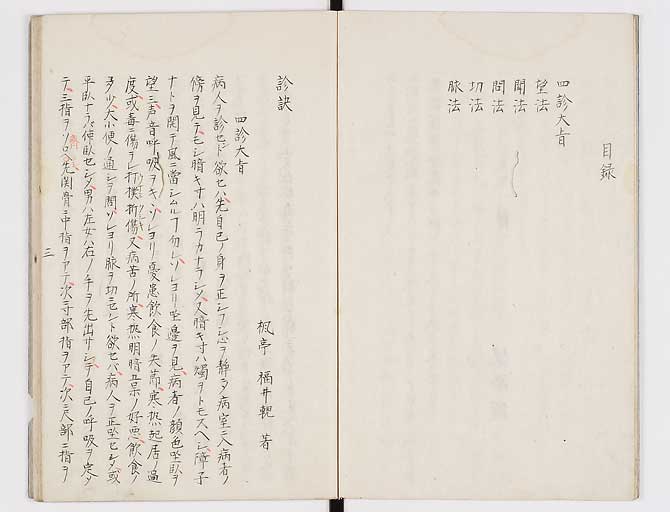 目録
四診大旨
望法
聞法
問法
切法
脉法
診訣
楓亭 福井輗 著
四診大旨
病人ヲ診セント欲セハ先自己ノ身ヲ正シフシ心ヲ静メ病室ニ入病者ノ
傍ヲ見テモシ暗キ寸ハ明ラカナラシメ又暗キ寸ハ燭ヲトモスヘシ障子
ナトヲ開テ風ニ當シムルヿ勿レソレヨリ坐邊ヲ見病者ノ顔色坐臥ヲ
望ミ声音呼吸ヲキヽソレヨリ憂患飲食ノ失節寒热起居ノ過
度或毒ニ傷ラレ打撲折傷又病苦ノ所寒热明暗五味ノ好悪飲食ノ
多少大小便ノ通シヲ問ソレヨリ脉ヲ切セント欲セバ病人ヲ正坐セシメ或
平臥ナラバ使臥セシメ男ハ左女ハ右ノ手ヲ先出サシテ自己ノ呼吸ヲ定メ
テ三指ヲソロヘ先関骨ニ中指ヲアテ次ニ寸部指ヲアテ次ニ尺部ニ指ヲ
三